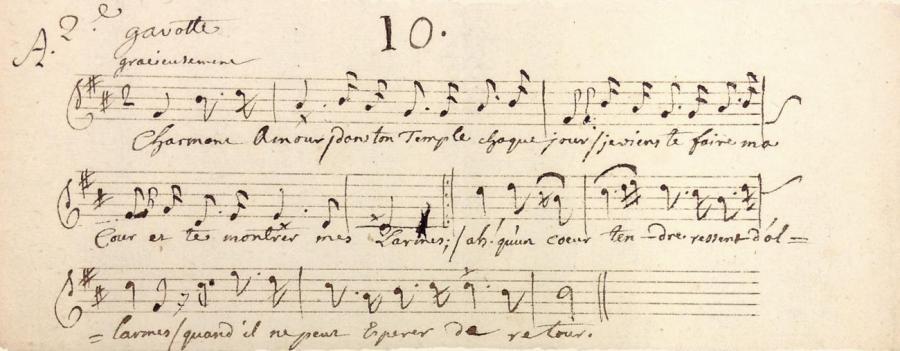 A. 2.e gavotte 10.
gracieusement
Charmant Amour/dans ton Temple chaque jour/je viens te faire ma
Cour et te montrer mes Larmes;/ah! qu'un coeur ten-dre ressent d'al=
=larmes/quand il ne peut Esperer de retour.